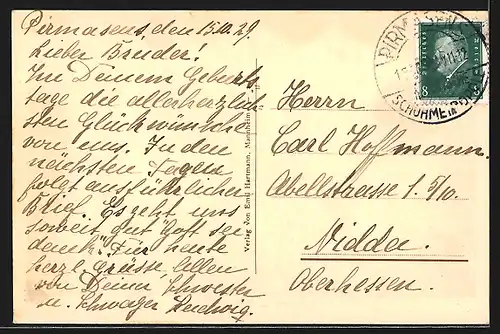 Pirmasens, den 15.10.29.
Lieber Bruder!
Zu Deinem Geburts
tage die allerherzlich
sten Glückwünsche
von uns. In den
nächsten Tagen
folgt ausführlicher
Brief. Es geht uns
soweit gut "Gott sei
dank". Für heute
herzl. Grüsse, Allen
von Deiner Schwester
u. Schwager Ludwig.
Verlag von Emil Hartmann, Mannheim
PIRMASENS
SCHUHME
DEUTSCHES REICH
8 8
Herrn
Carl Hoffmann.
Abellstrasse 1. 5/10.
Nidda.
Oberhessen.